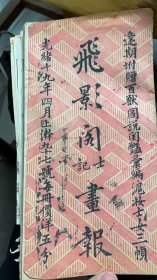 逢期附贈百獸圖說閨豔彙編滬妝士女三幀
飛影閣士記畫報
光緒十九年四月上澣九十七號每冊價洋五分